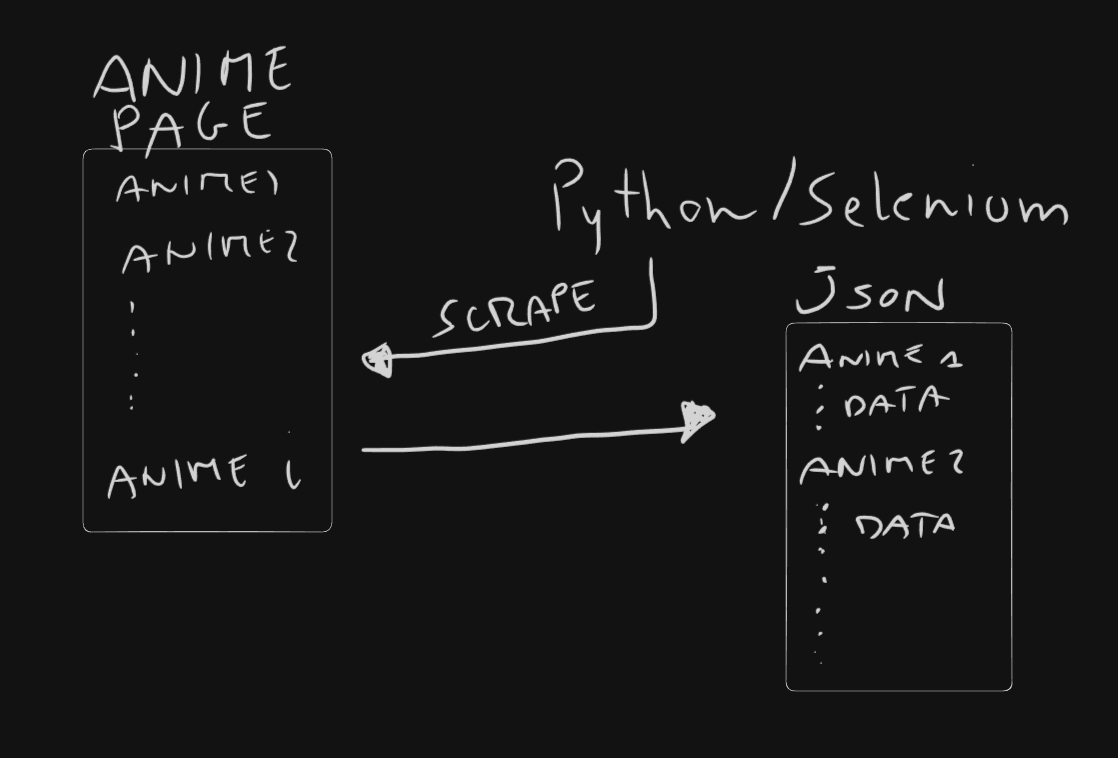 ANIME
PAGE
ANIME1
ANIME2
ANIME i
Python/Selenium
SCRAPE
JSON
ANIME 1
DATA
ANIME2
DATA